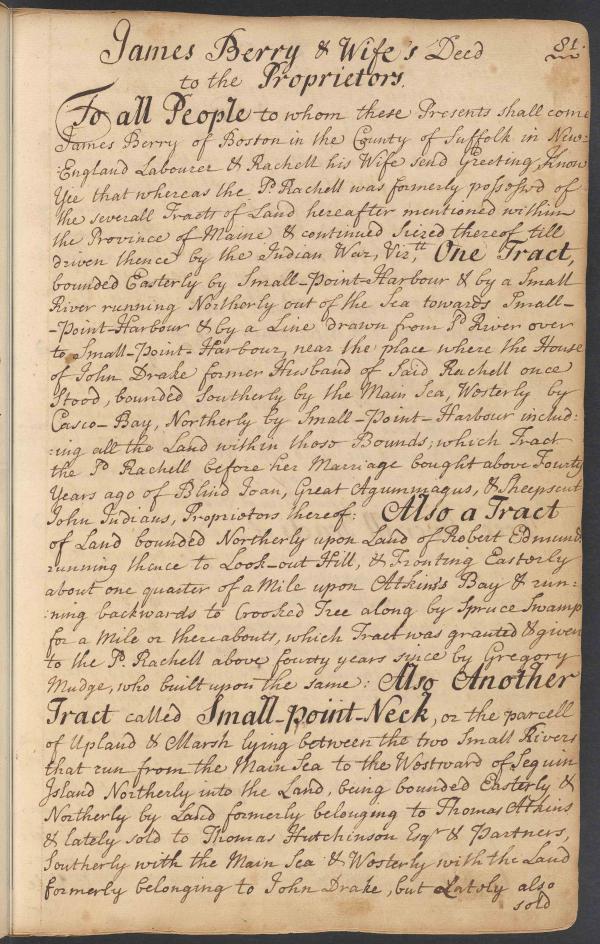 James Berry & Wife's Deed
81.
to the Proprietors.
To all People to whom these Presents shall come
James Berry of Boston in the County of Suffolk in New-
:England Labourer & Rachell his Wife send Greeting, Know
Yee that whereas the sd. Rachell was formerly possess'd of
the severall Tracts of Land hereafter mentioned within
the Province of Maine & continued seized thereof till
driven thence by the Indian War, Vizt. One Tract,
bounded Easterly by Small-Point-Harbour & by a Small
River running Northerly out of the Sea towards Small-
-Point-Harbour & by a Line drawn from sd River over
to Small-Point-Harbour, near the place where the House
of John Drake former Husband of Said Rachell once
Stood, bounded Southerly by the Main Sea, Westerly by
Casco-Bay, Northerly by Small-Point-Harbour includ:
:ing all the Land within those Bounds; which Tract
the sd. Rachell before her Marriage bought above Fourty
Years ago of Blind Joan, Great Agummagus, & Sheepscut
John Indians, Proprietors thereof: Also a Tract
of Land bounded Northerly upon Land of Robert Edmunds
running thence to Look-out Hill, & Fronting Easterly
about one quarter of a Mile upon Atkins's Bay & run:
:ning backwards to Crooked Tree along by Spruce Swamp
for a Mile or thereabouts, which Tract was granted & given
to the sd. Rachell above fourty years since by Gregory
Mudge, who built upon the same: Also Another
Tract called Small-point-Neck, or the parcell
of Upland & Marsh lying between the two Small Rivers
that run from the Main Sea to the Westward of Seguin
Island Northerly into the Land, being bounded Easterly &
Northerly by Land formerly belonging to Thomas Atkins
& lately sold to Thomas Hutchinson Esqr & Partners,
Southerly with the Main Sea & Westerly with the Land
formerly belonging to John Drake, but Lately also
sold